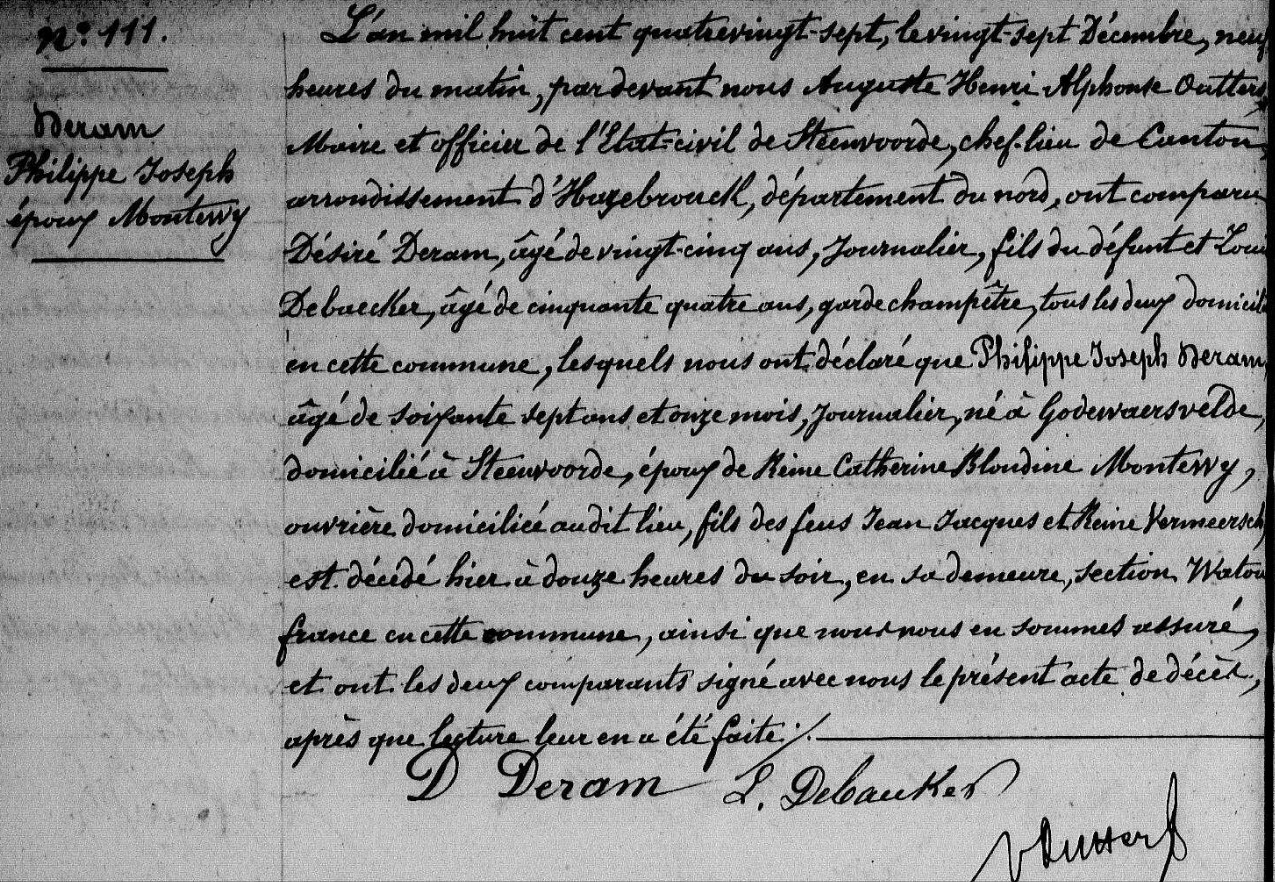 n.° 111.
Deram
Philippe Joseph
époux Montervy
L'an mil huit cent quatrevingt-sept, le vingt-sept Décembre, neuf
heures du matin, pardevant nous Auguste Henri Alphonse Outters,
Maire et officier de l'Etat-civil de Steenvoorde, chef-lieu de Canton,
arrondissement d'Hazebrouck, département du nord, ont comparu
Désiré Deram, âgé de vingt-cinq ans, Journalier, fils du défunt et Loui
Debaecker, âgé de cinquante quatre ans, garde champêtre, tous les deux domicili
en cette commune, lesquels nous ont déclaré que Philippe Joseph Deram,
âgé de soixante sept ans et onze mois, Journalier, né à Godewaersvelde,
domicilié à Steenvoorde, époux de Reine Catherine Blondine Montervy,
ouvrière domiciliée audit lieu, fils des feus Jean Jacques et Reine Vermeersch,
est décédé hier à douze heures du soir, en sa demeure, section Watou
france en cette commune, ainsi que nous nous en sommes assuré,
et ont les deux comparants signé avec nous le présent acte de décès,
après que lecture leur en a été faite ./.
D Deram L. Debaecker